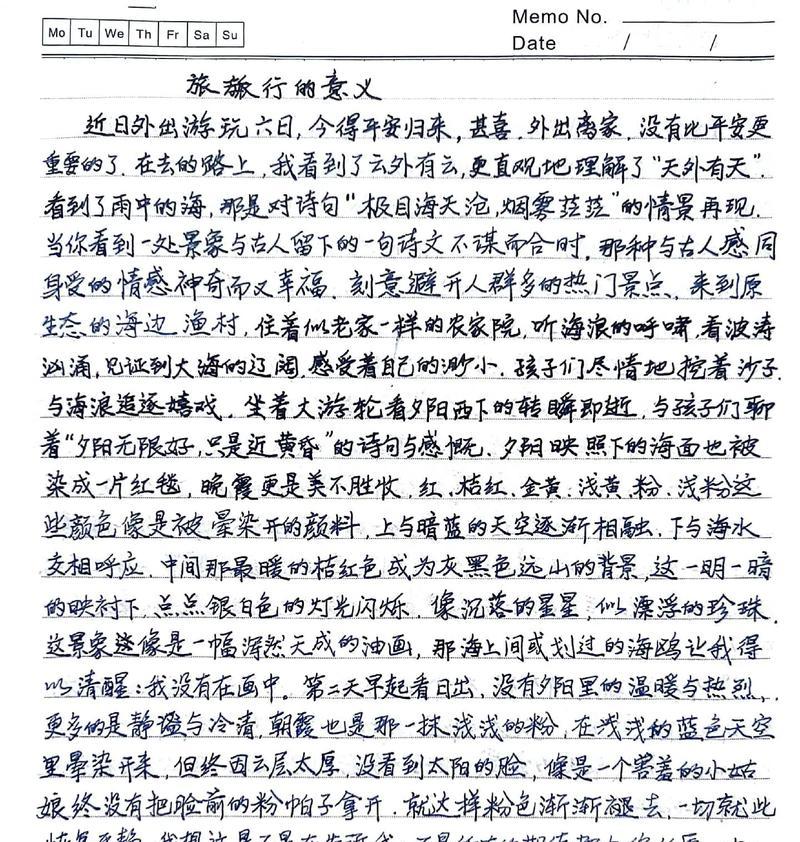 Memo No.
Mo Tu We Th Fr Sa Su
Date / /
旅旅行的意义
近日外出游玩六日,今得平安归来,甚喜.外出离家,没有比平安更
重要的了.在去的路上,我看到了云外有云,更直观地理解了“天外有天”.
看到了雨中的海,那是对诗句“极目海天沧,烟雾茫茫”的情景再现.
当你看到一处景象与古人留下的一句诗文不谋而合时,那种与古人感同
身受的情感神奇而又幸福.刻意避开人群多的热门景点,来到原
生态的海边渔村,住着似老家一样的农家院,听海浪的呼啸,看波涛
汹涌,见证到大海的辽阔,感受着自己的渺小.孩子们尽情地挖着沙子,
与海浪追逐嬉戏.坐着大游轮看夕阳西下的转瞬即逝,与孩子们聊
着“夕阳无限好,只是近黄昏”的诗句与感慨.夕阳映照下的海面也被
染成一片红毯,晚霞更是美不胜收,红、桔红、金黄、浅黄、粉、浅粉这
些颜色像是被晕染开的颜料,上与暗蓝的天空逐渐相融、下与海水
交相呼应.中间那最暖的桔红色成为灰黑色远山的背景,这一明一暗
的映衬下,点点银白色的灯光闪烁.像沉落的星星,似漂浮的珍珠.
这景象像是一幅浑然天成的油画,那海上间或划过的海鸥让我得
以清醒:我没有在画中.第二天早起看日出,没有夕阳里的温暖与热烈,
更多的是静谧与冷清,朝霞也是那一抹浅浅的粉,在浅浅的蓝色天空
里晕染开来,但终因云层太厚,没看到太阳的脸,像是一个害羞的小姑
娘终没有把脸前的粉帕子拿开.就这样粉色渐渐褪去,一切就此